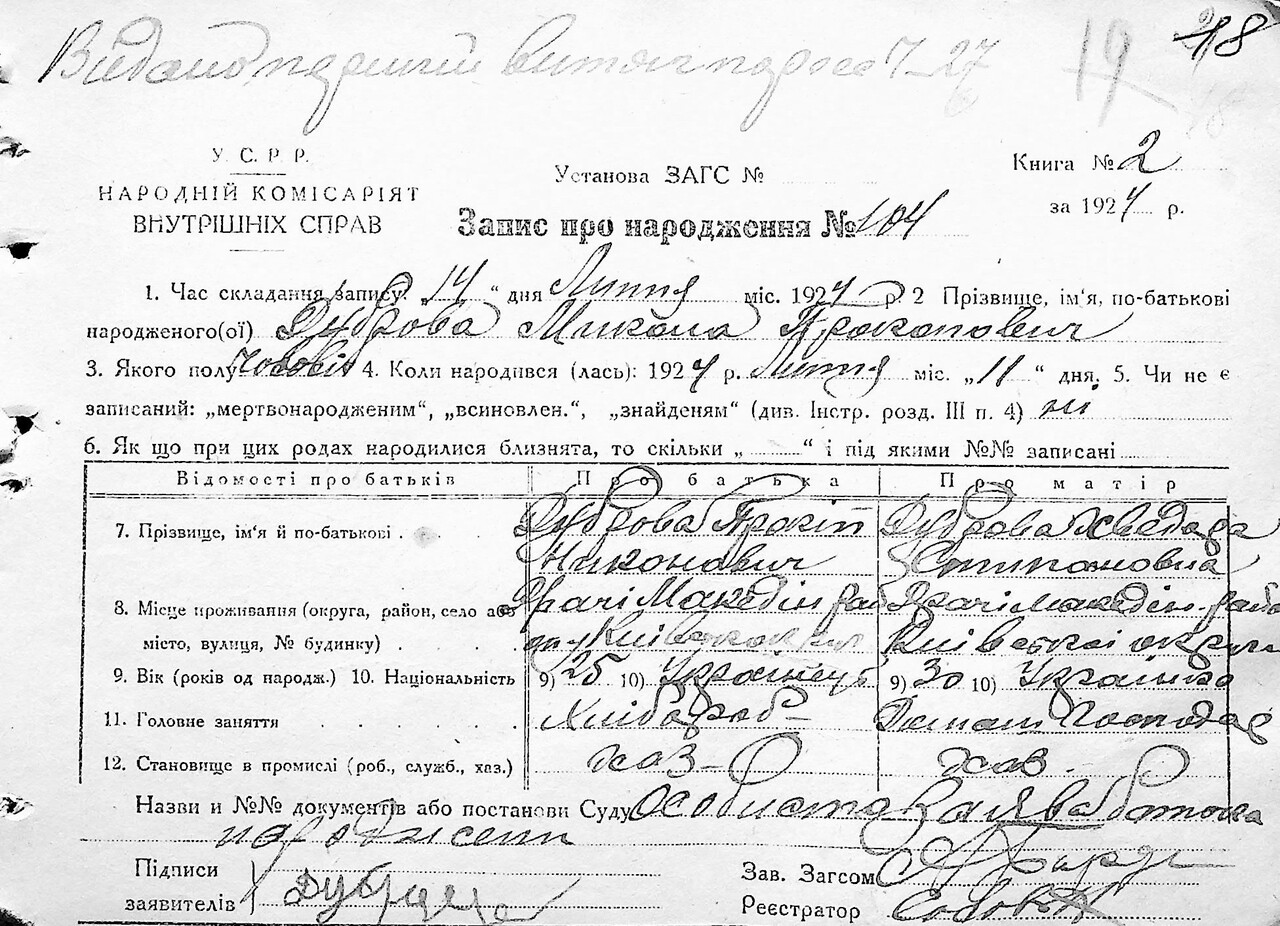 Видано первий витяг по рес 7-27
19 18
У. С. Р. Р.
НАРОДНІЙ КОМІСАРІЯТ
ВНУТРІШНІХ СПРАВ
Установа ЗАГС №
Книга № 2
за 1924 р.
Запис про народження № 104
1. Час складання запису: 14 " дня Липня міс. 1924 р. 2 Прізвище, ім'я, по-батькові
народженого(ої) Дуброва Микола Прокопович
3. Якого полу Чоловік 4. Коли народився (лась): 1924 р. Липня міс. „11 " дня. 5. Чи не є
записаний: „мертвонародженим", „всиновлен.", „знайденям" (див. Інстр. розд. III п. 4) ні
6. Як що при цих родах народилися близнята, то скільки „ " і під якими №№ записані
Відомості про батьків Про батька Про матір
7. Прізвище, ім'я й по-батькові . Дуброва Прокіп Дуброва
Никонович Степановна
8. Місце проживання (округа, район, село або Драчі Македін. рай Драчі Македін. рай
місто, вулиця, № будинку) . Київської окр Київської округи
9. Вік (років од народж.) 10. Національність 9) 25 10) Українець 9) 30 10) Українка
11. Головне заняття . . . . . Хлібороб Домаш господар
12. Становище в промислі (роб., служб., хаз.) хаз - О хаз -
Назви и №№ документів або постанови Суду Особиста заява батька
народженн
Підписи
заявителів Дуброва
Зав. Загсом
Реєстратор